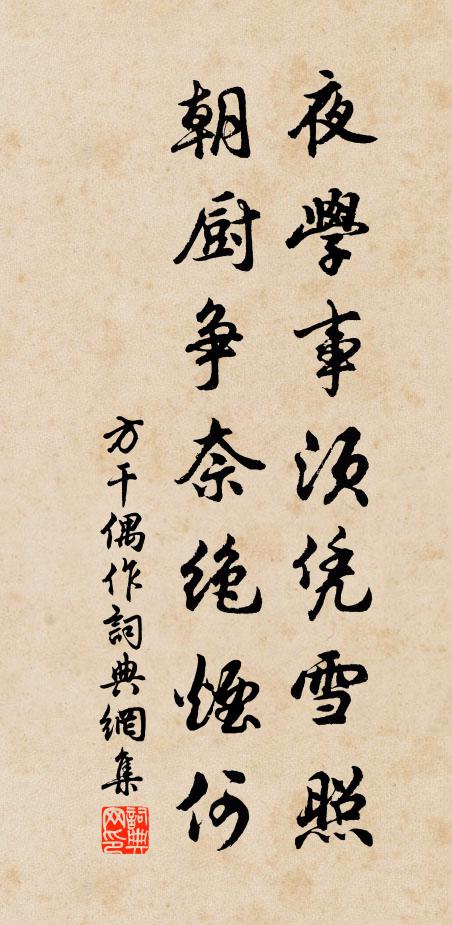 夜學事須凭雪照
朝厨争奈绝煙何
方干偶作詞典網集
詞典網印